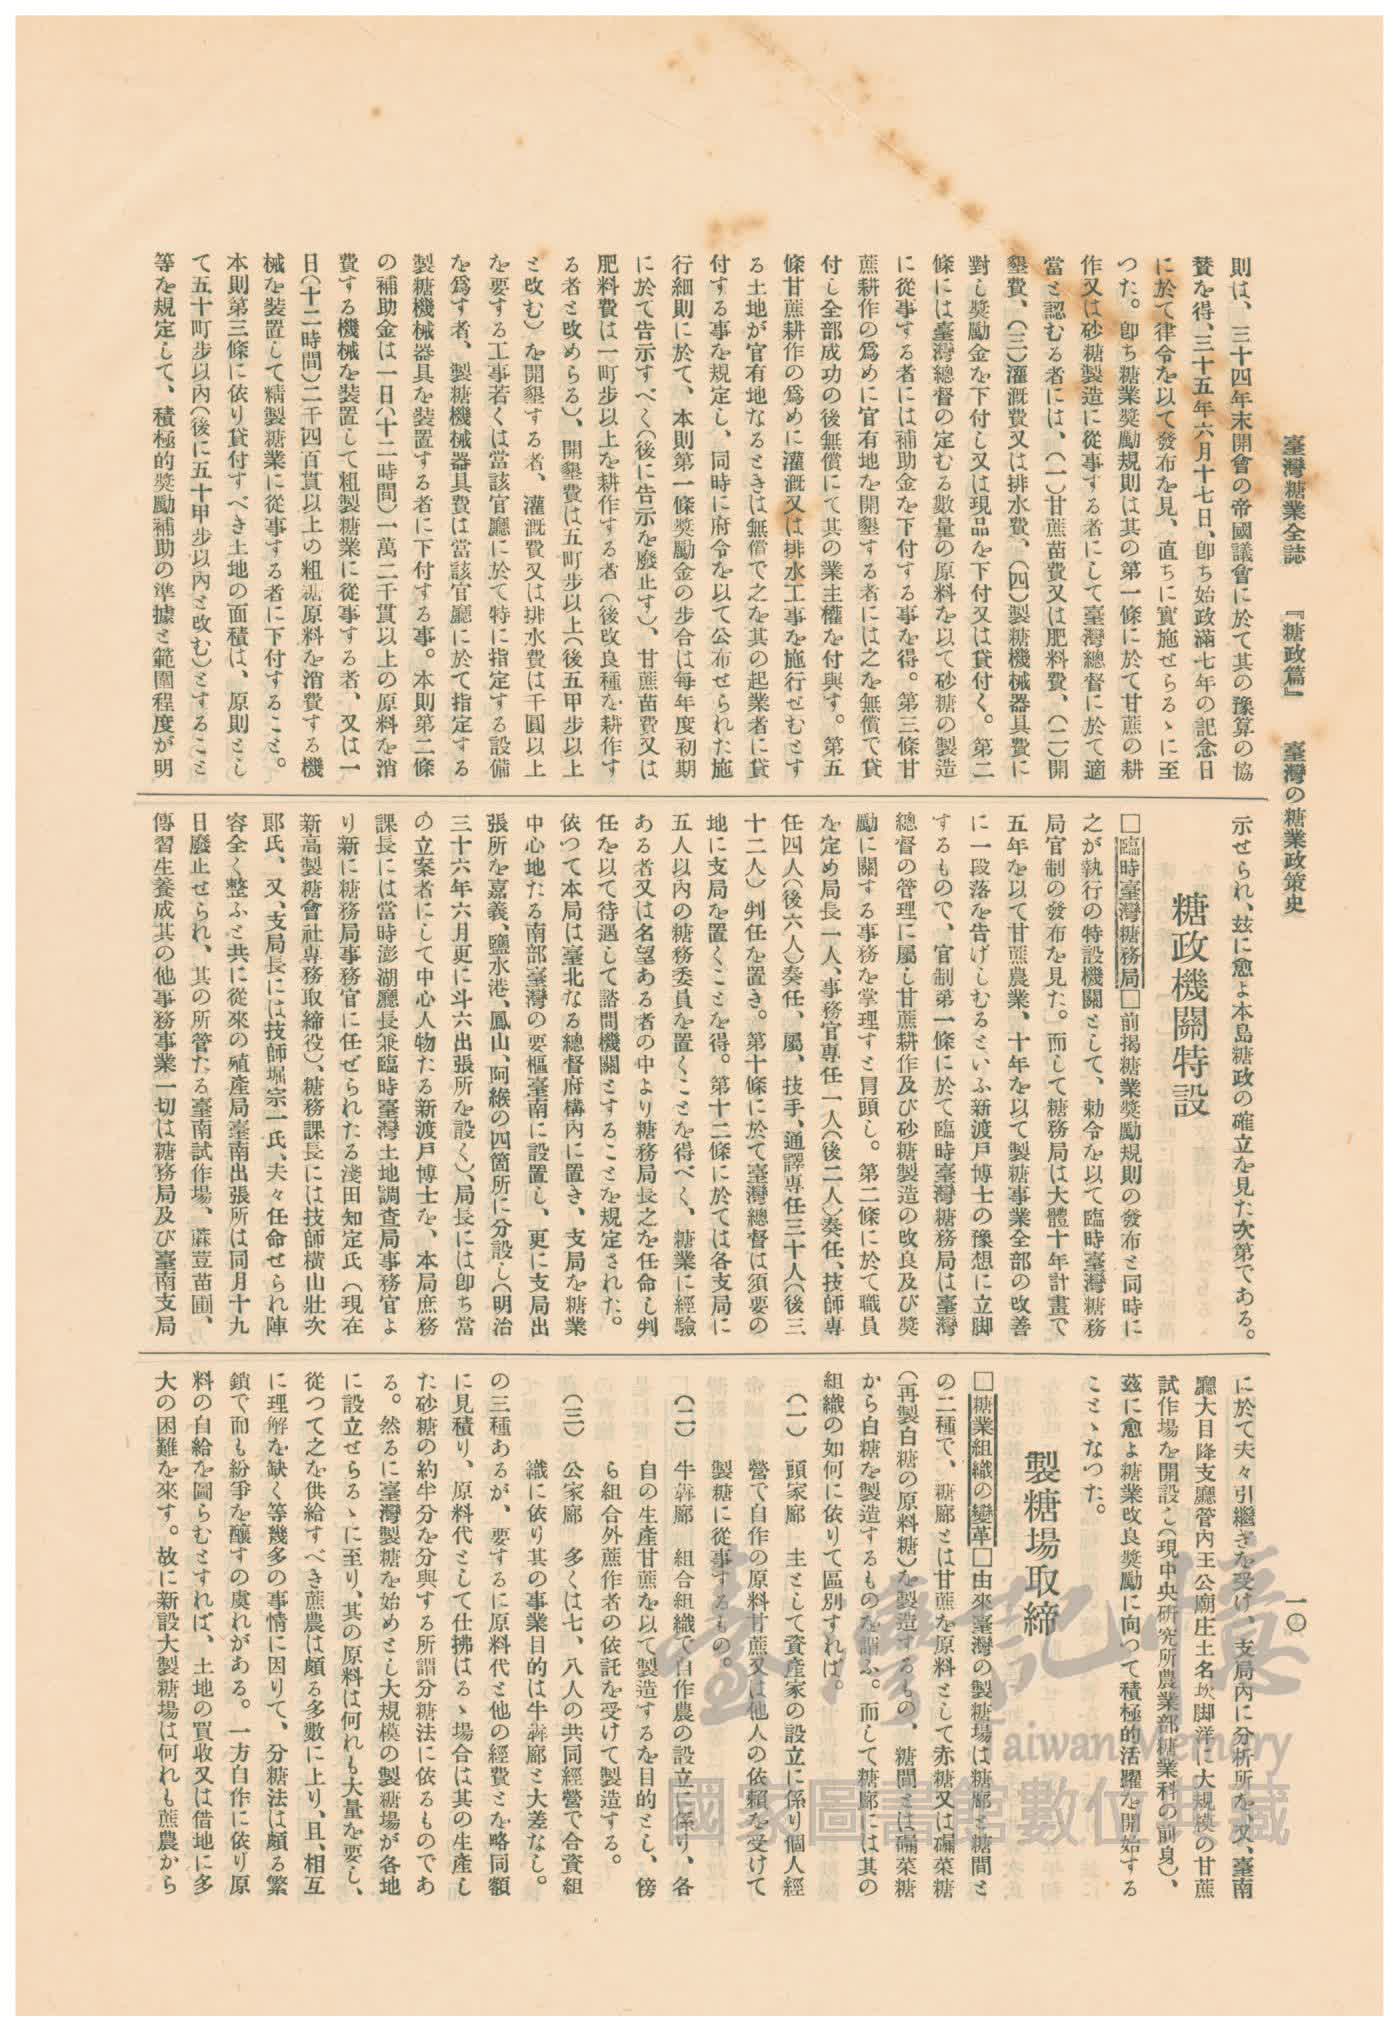 臺灣糖業全誌 『糖政篇』 臺灣の糖業政策史
一〇
則は、三十四年末開會の帝國議會に於て其の豫算の協
賛を得、三十五年六月十七日、卽ち始政滿七年の記念日
に於て律令を以て發布を見、直ちに實施せらるゝに至
つた。卽ち糖業奬勵規則は其の第一條に於て甘蔗の耕
作又は砂糖製造に從事する者にして臺灣總督に於て適
當と認むる者には、(一)甘蔗苗費又は肥料費、(二)開
墾費、(三)灌漑費又は排水費、(四)製糖機械器具費に
對し奬勵金を下付し又は現品を下付又は貸付く。第二
條には臺灣總督の定むる數量の原料を以て砂糖の製造
に從事する者には補助金を下付する事を得。第三條甘
蔗耕作の爲めに官有地を開墾する者には之を無償で貸
付し全部成功の後無償にて其の業主權を付與す。第五
條甘蔗耕作の爲めに灌漑又は排水工事を施行せむとす
る土地が官有地なるときは無償で之を其の起業者に貸
付する事を規定し、同時に府令を以て公布せられた施
行細則に於て、本則第一條奬勵金の步合は每年度初期
に於て告示すべく(後に告示を廢止す)、甘蔗苗費又は
肥料費は一町步以上を耕作する者(後改良種を耕作す
る者と改めらる)、開墾費は五町步以上(後五甲步以上
と改む)を開墾する者、灌漑費又は排水費は千圓以上
を要する工事若くは當該官廳に於て特に指定する設備
を爲す者、製糖機械器具費は當該官廳に於て指定する
製糖機械器具を裝置する者に下付する事。本則第二條
の補助金は一日(十二時間)一萬二千貫以上の原料を消
費する機械を裝置して粗製糖業に從事する者、又は一
日(十二時間)二千四百貫以上の粗糖原料を消費する機
械を裝置して精製糖業に從事する者に下付すること。
本則第三條に依り貸付すべき土地の面積は、原則とし
て五十町步以內(後に五十甲步以內と改む)とすること
等を規定して、積極的奬勵補助の準據と範圍程度が明
示せられ、玆に愈よ本島糖政の確立を見た次第である。
糖政機關特設
□臨時臺灣糖務局□前揭糖業奬勵規則の發布と同時に
之が執行の特設機關として、勅令を以て臨時臺灣糖務
局官制の發布を見た。而して糖務局は大體十年計畫で
五年を以て甘蔗農業、十年を以て製糖事業全部の改善
に一段落を告げしむるといふ新渡戶博士の豫想に立脚
するもので、官制第一條に於て臨時臺灣糖務局は臺灣
總督の管理に屬し甘蔗耕作及び砂糖製造の改良及び奬
勵に關する事務を掌理すと冒頭し。第二條に於て職員
を定め局長一人、事務官專任一人(後二人)奏任、技師專
任四人(後六人)奏任、屬、技手、通譯專任三十人(後三
十二人)判任を置き。第十條に於て臺灣總督は須要の
地に支局を置くことを得。第十二條に於ては各支局に
五人以內の糖務委員を置くことを得べく、糖業に經驗
ある者又は名望ある者の中より糖務局長之を任命し判
任を以て待遇して諮問機關とすることを規定された。
依つて本局は臺北なる總督府構內に置き、支局を糖業
中心地たる南部臺灣の要樞臺南に設置し、更に支局出
張所を嘉義、鹽水港、鳳山、阿緱の四箇所に分設し(明治
三十六年六月更に斗六出張所を設く)、局長には卽ち當
の立案者にして中心人物たる新渡戶博士を、本局庶務
課長には當時澎湖廳長兼臨時臺灣土地調查局事務官よ
り新に糖務局事務官に任ぜられたる淺田知定氏(現在
新高製糖會社專務取締役)、糖務課長には技師橫山壯次
郎氏、又、支局長には技師堀宗一氏、夫々任命せられ陣
容全く整ふと共に從來の殖產局臺南出張所は同月十九
日廢止せられ、其の所管たる臺南試作場、蔴荳苗圃、
傳習生養成其の他事務事業一切は糖務局及び臺南支局
に於て夫々引繼ぎを受け、支局內に分析所を、又、臺南
廳大目降支廳管內王公廟庄土名坎脚洋に大規模の甘蔗
試作場を開設し(現中央硏究所農業部糖業科の前身)、
玆に愈よ糖業改良奬勵に向つて積極的活躍を開始する
ことゝなつた。
製糖場取締
□糖業組織の變革□由來臺灣の製糖場は糖廍と糖間と
の二種で、糖廍とは甘蔗を原料として赤糖又は𥖁菜糖
(再製白糖の原料糖)を製造するもの、糖間とは𥖁菜糖
から白糖を製造するものを謂ふ。而して糖廍には其の
組織の如何に依りて區別すれば。
(一) 頭家廍 主として資產家の設立に係り個人經
營で自作の原料甘蔗又は他人の依賴を受けて
製糖に從事するもの。
(二) 牛犇廍 組合組織で自作農の設立に係り、各
自の生產甘蔗を以て製造するを目的とし、傍
ら組合外蔗作者の依託を受けて製造する。
(三) 公家廍 多くは七、八人の共同經營で合資組
織に依り其の事業目的は牛犇廍と大差なし。
の三種あるが、要するに原料代と他の經費とを略同額
に見積り、原料代として仕拂はるゝ場合は其の生產し
た砂糖の約半分を分與する所謂分糖法に依るものであ
る。然るに臺灣製糖を始めとし大規模の製糖場が各地
に設立せらるゝに至り、其の原料は何れも大量を要し、
從つて之を供給すべき蔗農は頗る多數に上り、且、相互
に理解を缺く等幾多の事情に因りて、分糖法は頗る繁
鎖で而も紛爭を釀すの虞れがある。一方自作に依り原
料の自給を圖らむとすれば、土地の買收又は借地に多
大の困難を來す。故に新設大製糖場は何れも蔗農から
臺灣記憶
Taiwan Memory
國家圖書館數位典藏